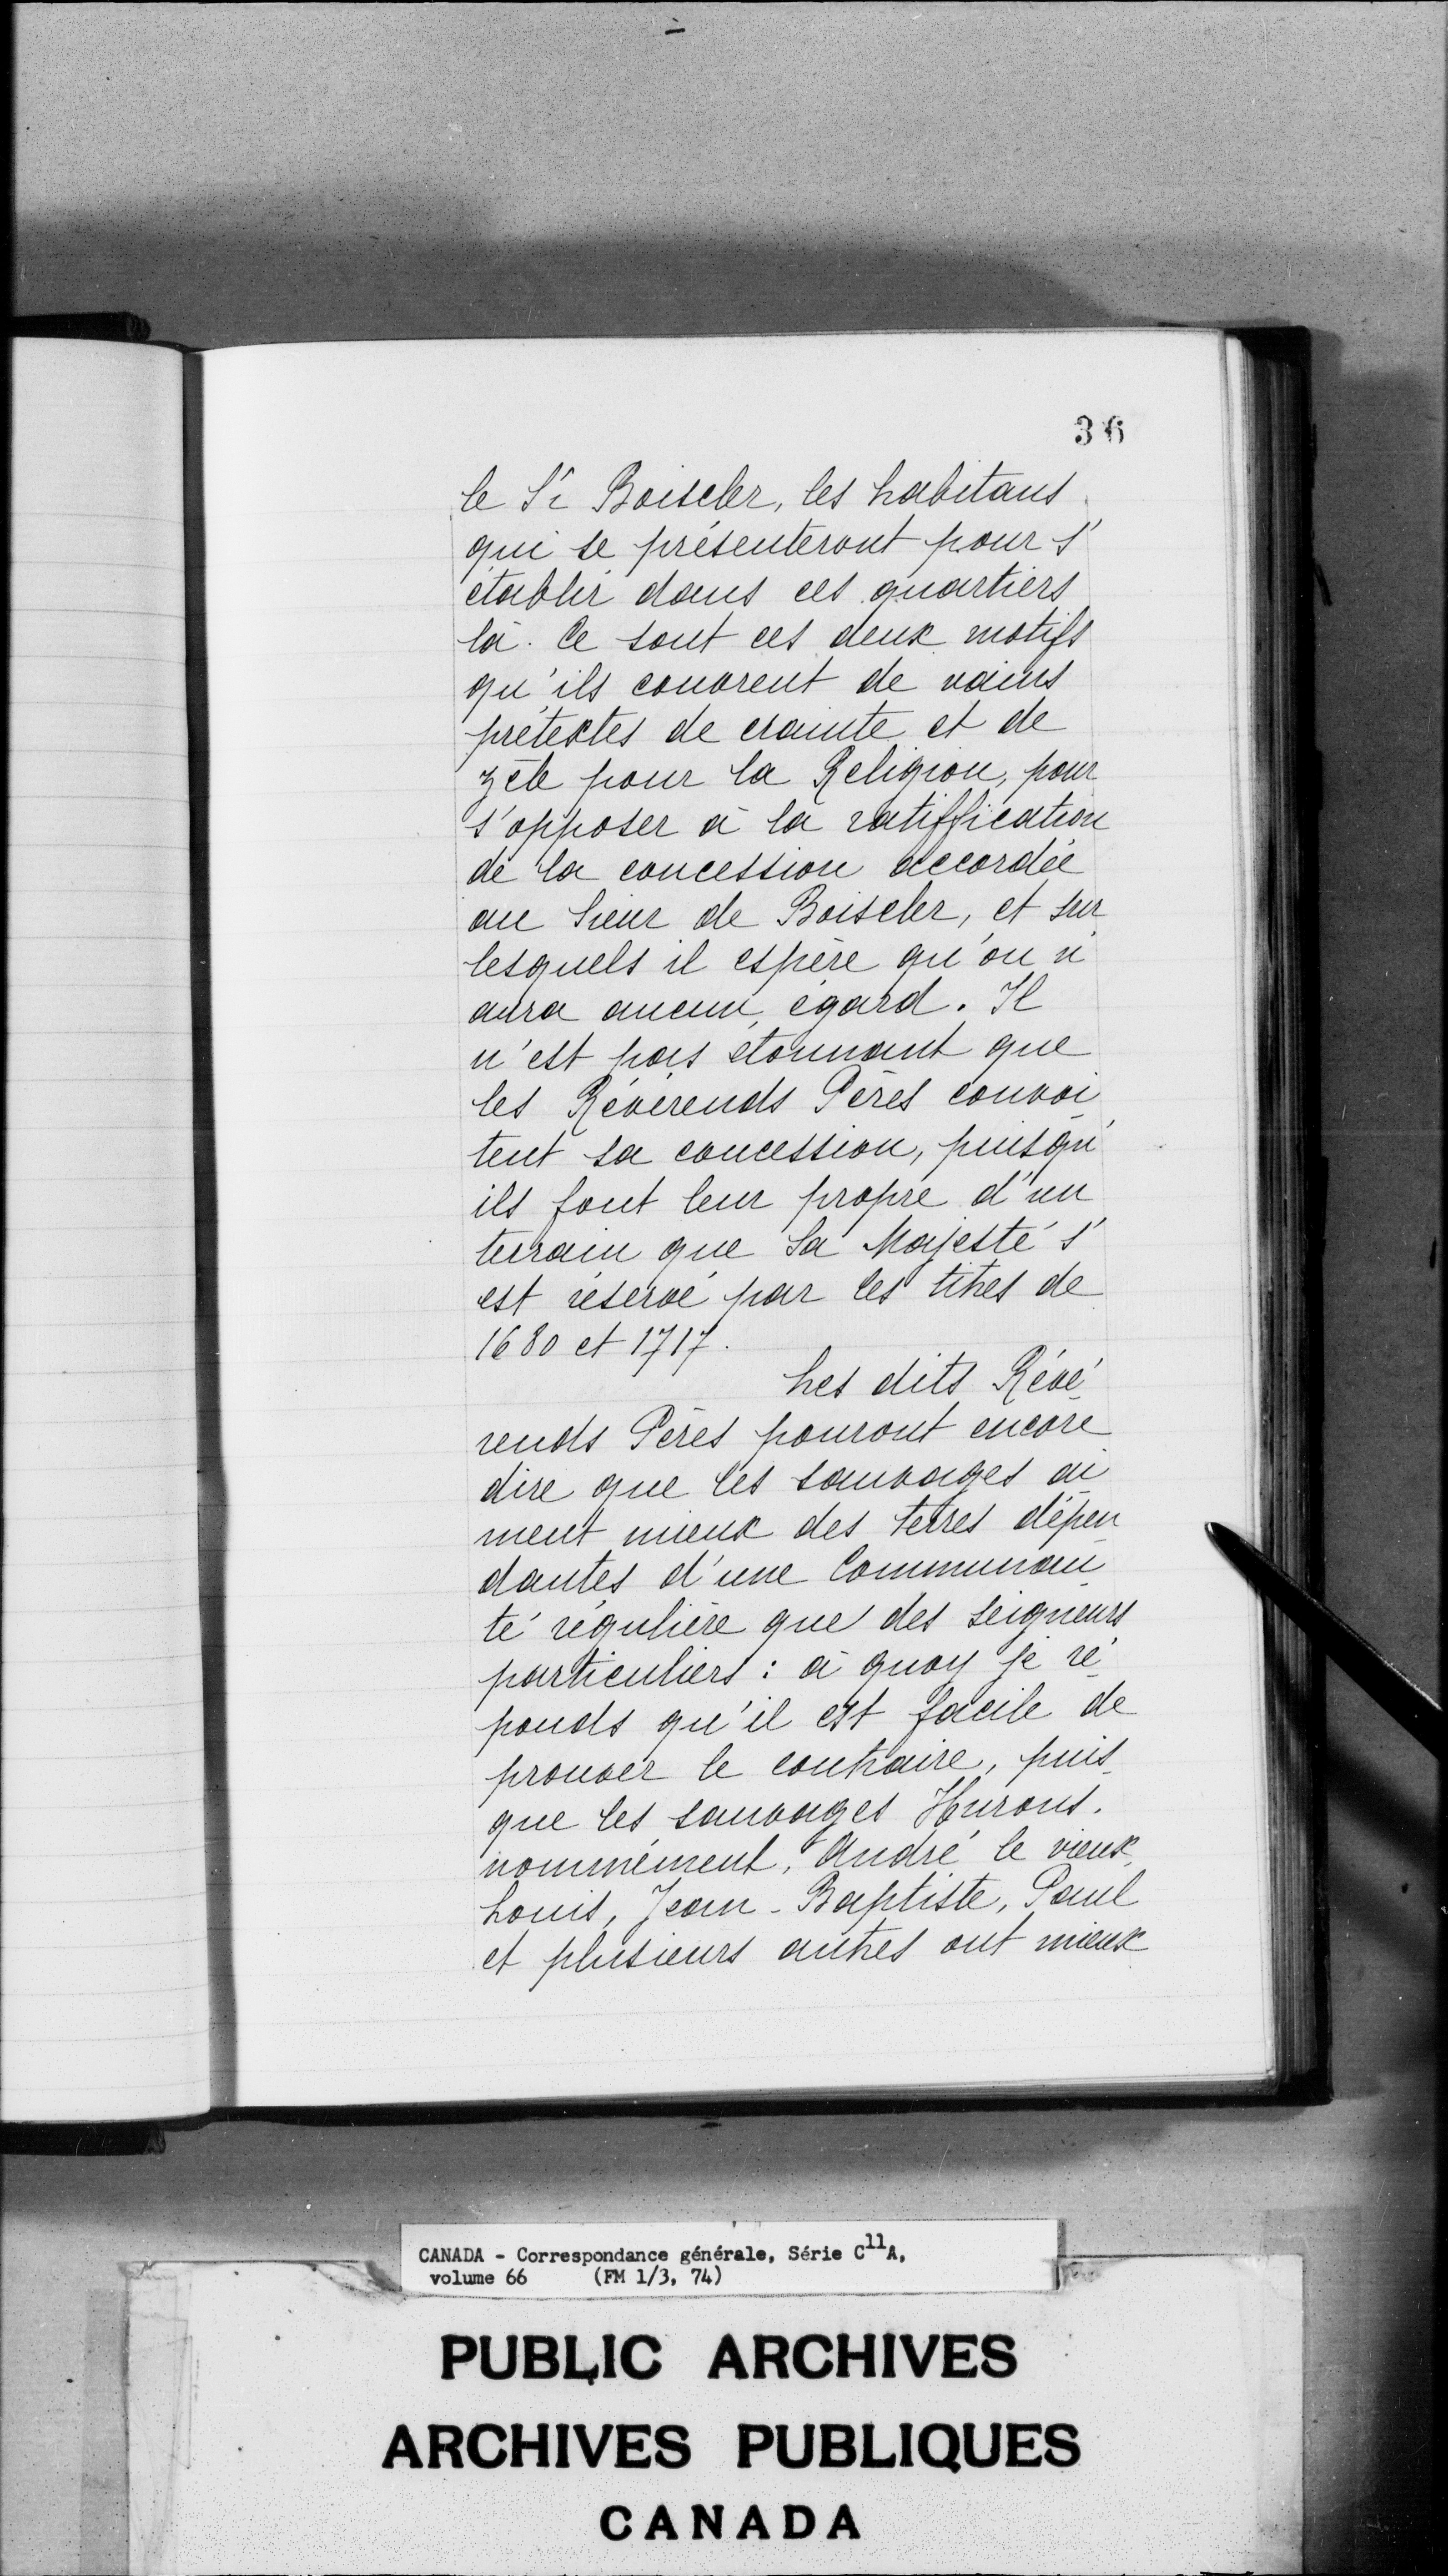 36
le Sr Boiscler, les habitans
qui se présenteront pour s'
établir dans ces quartiers
là. Ce sont ces deux motifs
qu'ils couvrent de vains
prétextes de crainte et de
zèle pour la Religion, pour
s'opposer à la ratiffication
de la concession accordée
au Sieur de Boiscler, et sur
lesquels il espère qu'on n'
aura aucun égard. Il
n'est pas étonnant que
les Révérends Pères convoi
tent sa concession, puisqu'
ils font leur propre d'un
terrain que Sa Majesté s'
est réservé par les titres de
1680 et 1717.
Les dits Révé
rends Pères pouront encore
dire que les sauvages ai
ment mieux des terres dépen
dantes d'une Communau
té régulière que des seigneurs
particuliers : à quoy je ré
ponds qu'il est facile de
prouver le contraire, puis
que les sauvages Hurons.
nommément, André le vieux,
Louis, Jean-Baptiste, Paul
et plusieurs autres ont mieux
CANADA - Correspondance générale, Série C11A,
volume 66 (FM 1/3, 74)
PUBLIC ARCHIVES
ARCHIVES PUBLIQUES
CANADA